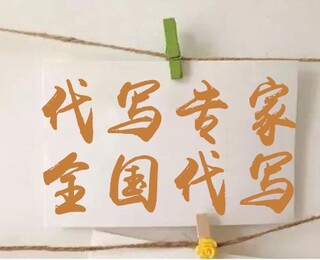 代写专家
全国代写